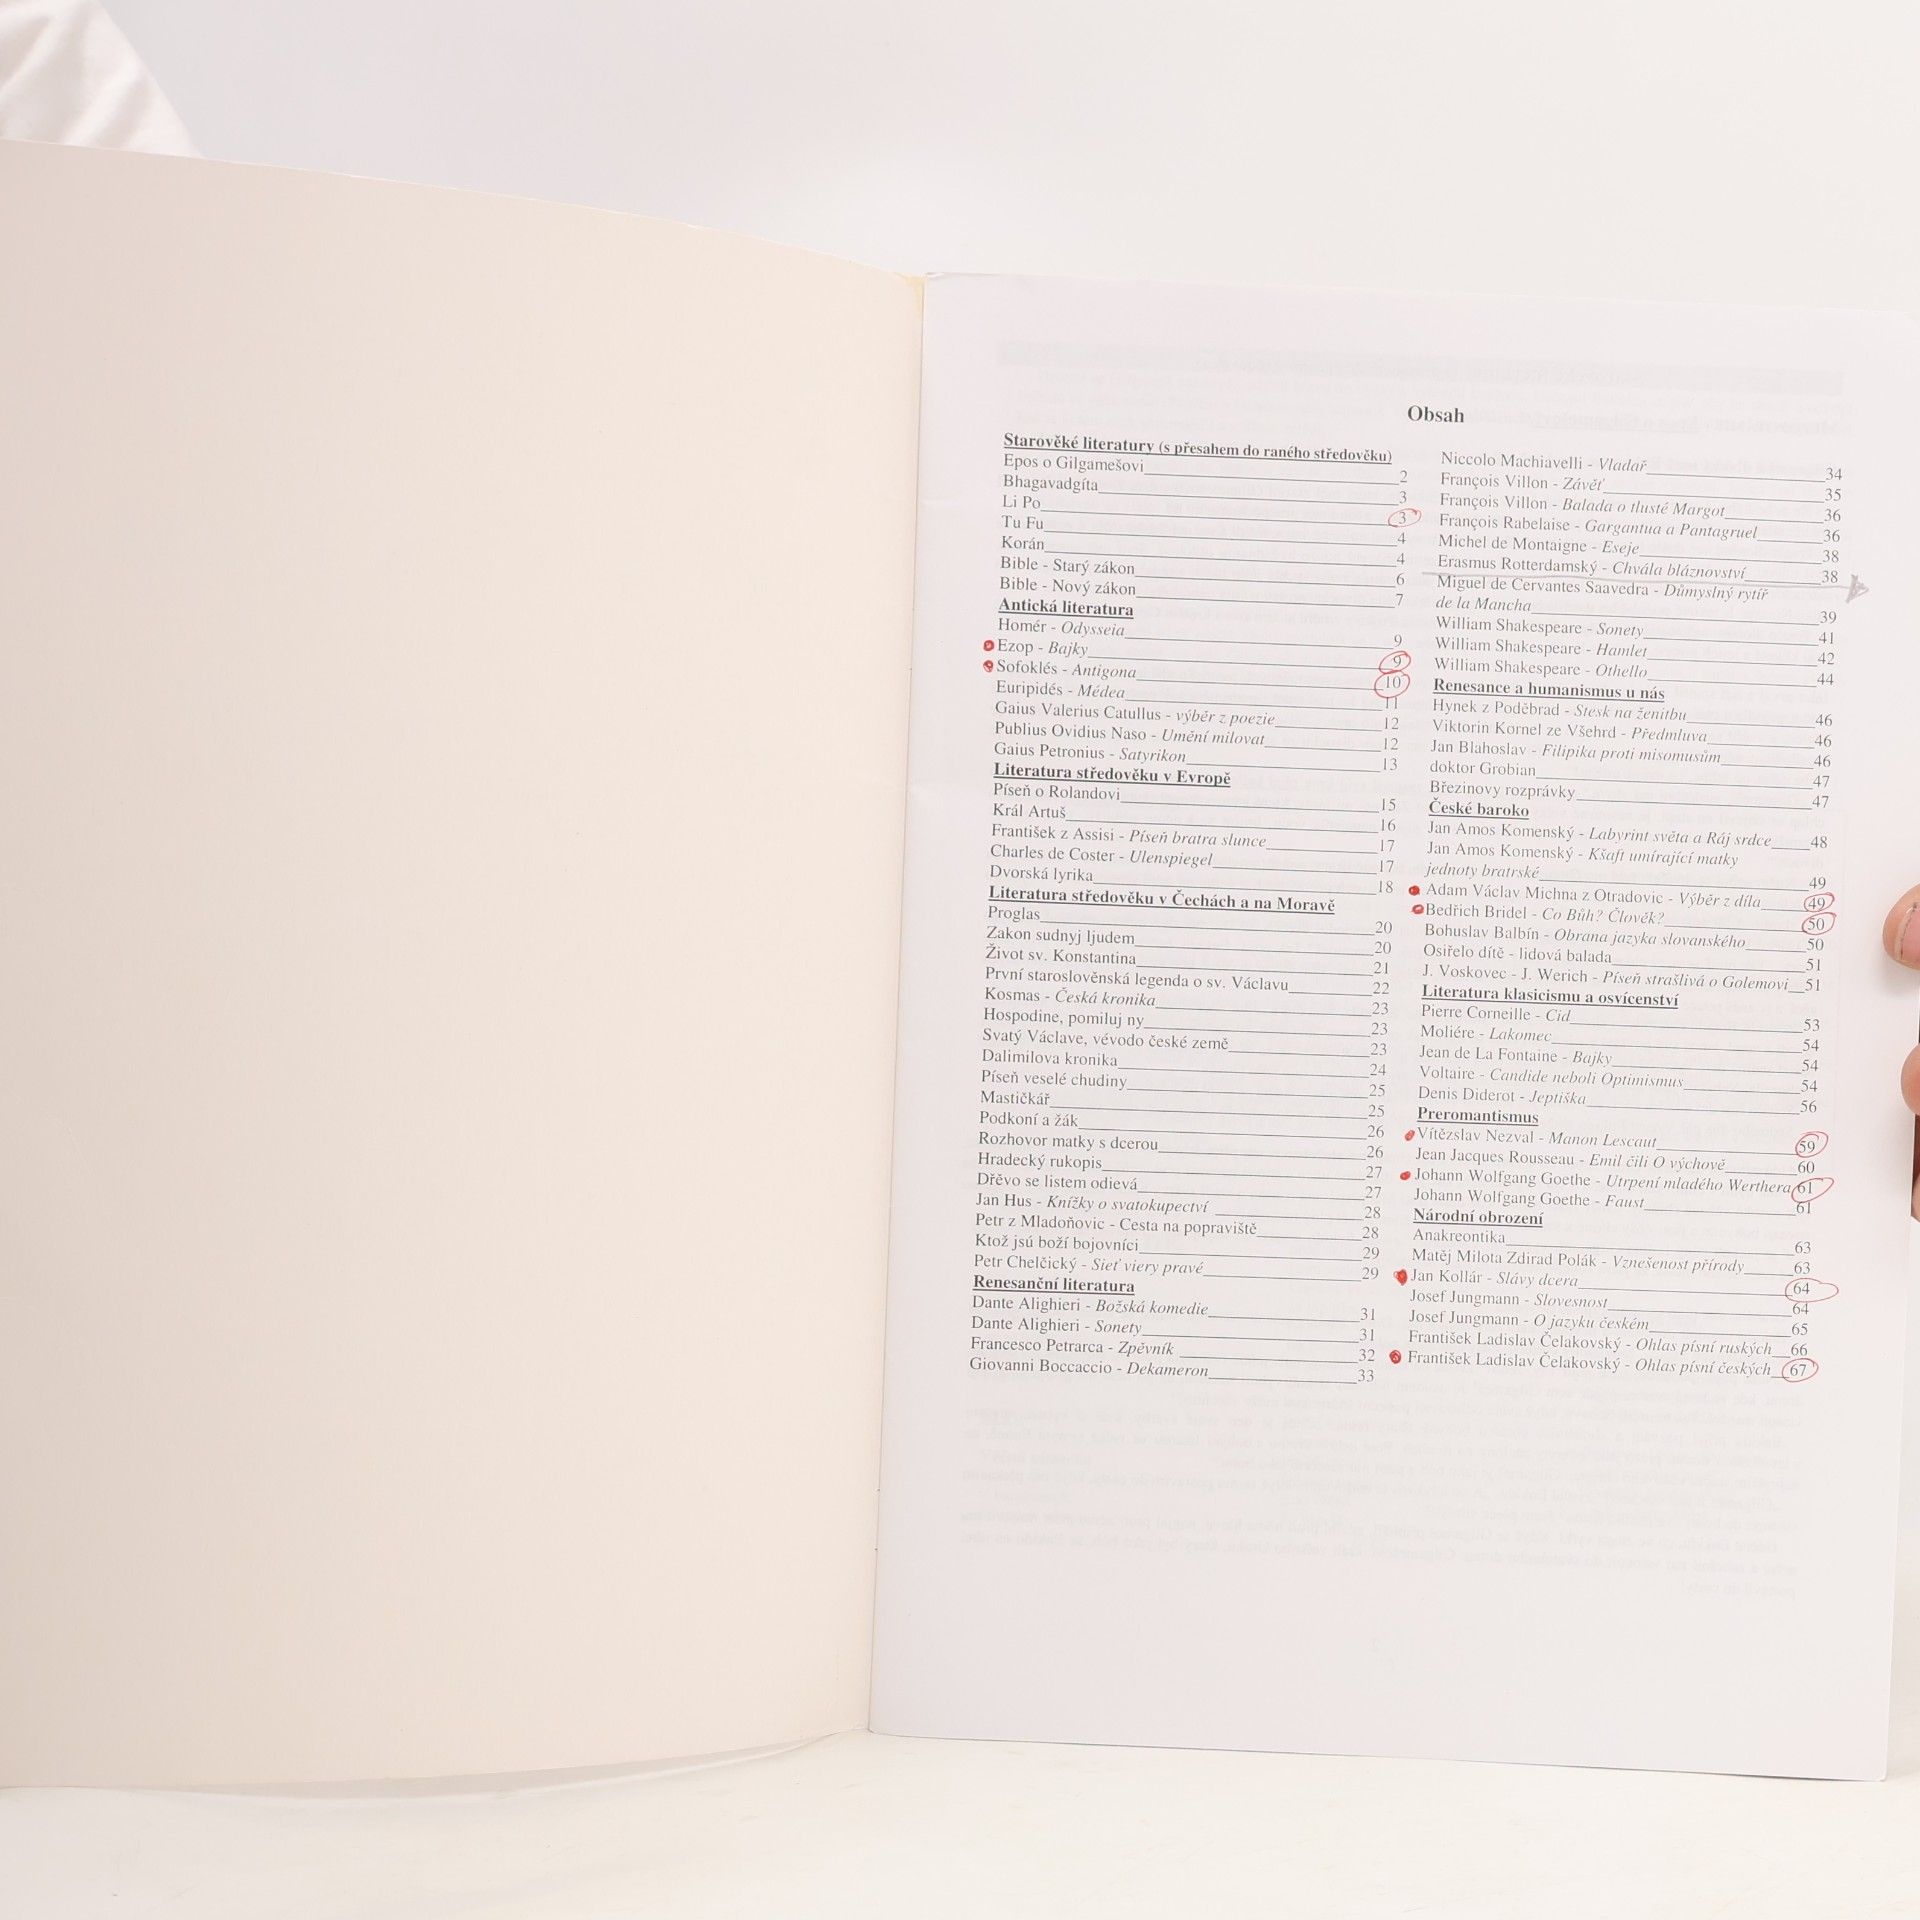 Obsah
Starověké literatury (s přesahem do raného středověku)
Epos o Gilgamešovi 2
Bhagavadgíta 3
Li Po 3
Tu Fu 4
Korán 4
Bible - Starý zákon 6
Bible - Nový zákon 7
Antická literatura
Homér - Odysseia 9
Ezop - Bajky 9
Sofoklés - Antigona 10
Euripidés - Médea 11
Gaius Valerius Catullus - výběr z poezie 12
Publius Ovidius Naso - Umění milovat 12
Gaius Petronius - Satyrikon 13
Literatura středověku v Evropě
Píseň o Rolandovi 15
Král Artuš 16
František z Assisi - Píseň bratra slunce 17
Charles de Coster - Ulenspiegel 17
Dvorská lyrika 18
Literatura středověku v Čechách a na Moravě
Proglas 20
Zakon sudnyj ljudem 20
Život sv. Konstantina 21
První staroslověnská legenda o sv. Václavu 22
Kosmas - Česká kronika 23
Hospodine, pomiluj ny 23
Svatý Václave, vévodo české země 23
Dalimilova kronika 24
Píseň veselé chudiny 25
Mastičkář 25
Podkoní a žák 26
Rozhovor matky s dcerou 26
Hradecký rukopis 27
Dřěvo se listem odievá 27
Jan Hus - Knížky o svatokupectví 28
Petr z Mladoňovic - Cesta na popraviště 28
Ktož jsú boží bojovníci 29
Petr Chelčický - Sieť viery pravé 29
Renesanční literatura
Dante Alighieri - Božská komedie 31
Dante Alighieri - Sonety 31
Francesco Petrarca - Zpěvník 32
Giovanni Boccaccio - Dekameron 33
Niccolo Machiavelli - Vladař 34
François Villon - Závěť 35
François Villon - Balada o tlusté Margot 36
François Rabelaise - Gargantua a Pantagruel 36
Michel de Montaigne - Eseje 38
Erasmus Rotterdamský - Chvála bláznovství 38
Miguel de Cervantes Saavedra - Důmyslný rytíř
de la Mancha 39
William Shakespeare - Sonety 41
William Shakespeare - Hamlet 42
William Shakespeare - Othello 44
Renesance a humanismus u nás
Hynek z Poděbrad - Stesk na ženitbu 46
Viktorin Kornel ze Všehrd - Předmluva 46
Jan Blahoslav - Filipika proti misomusům 46
doktor Grobian 47
Březinovy rozprávky 47
České baroko
Jan Amos Komenský - Labyrint světa a Ráj srdce 48
Jan Amos Komenský - Kšaft umírající matky
jednoty bratrské 49
Adam Václav Michna z Otradovic - Výběr z díla 49
Bedřich Bridel - Co Bůh? Člověk? 50
Bohuslav Balbín - Obrana jazyka slovanského 50
Osiřelo dítě - lidová balada 51
J. Voskovec - J. Werich - Píseň strašlivá o Golemovi 51
Literatura klasicismu a osvícenství
Pierre Corneille - Cid 53
Moliére - Lakomec 54
Jean de La Fontaine - Bajky 54
Voltaire - Candide neboli Optimismus 54
Denis Diderot - Jeptiška 56
Preromantismus
Vítězslav Nezval - Manon Lescaut 59
Jean Jacques Rousseau - Emil čili O výchově 60
Johann Wolfgang Goethe - Utrpení mladého Werthera 61
Johann Wolfgang Goethe - Faust 61
Národní obrození
Anakreontika 63
Matěj Milota Zdirad Polák - Vznešenost přírody 63
Jan Kollár - Slávy dcera 64
Josef Jungmann - Slovesnost 64
Josef Jungmann - O jazyku českém 65
František Ladislav Čelakovský - Ohlas písní ruských 66
František Ladislav Čelakovský - Ohlas písní českých 67